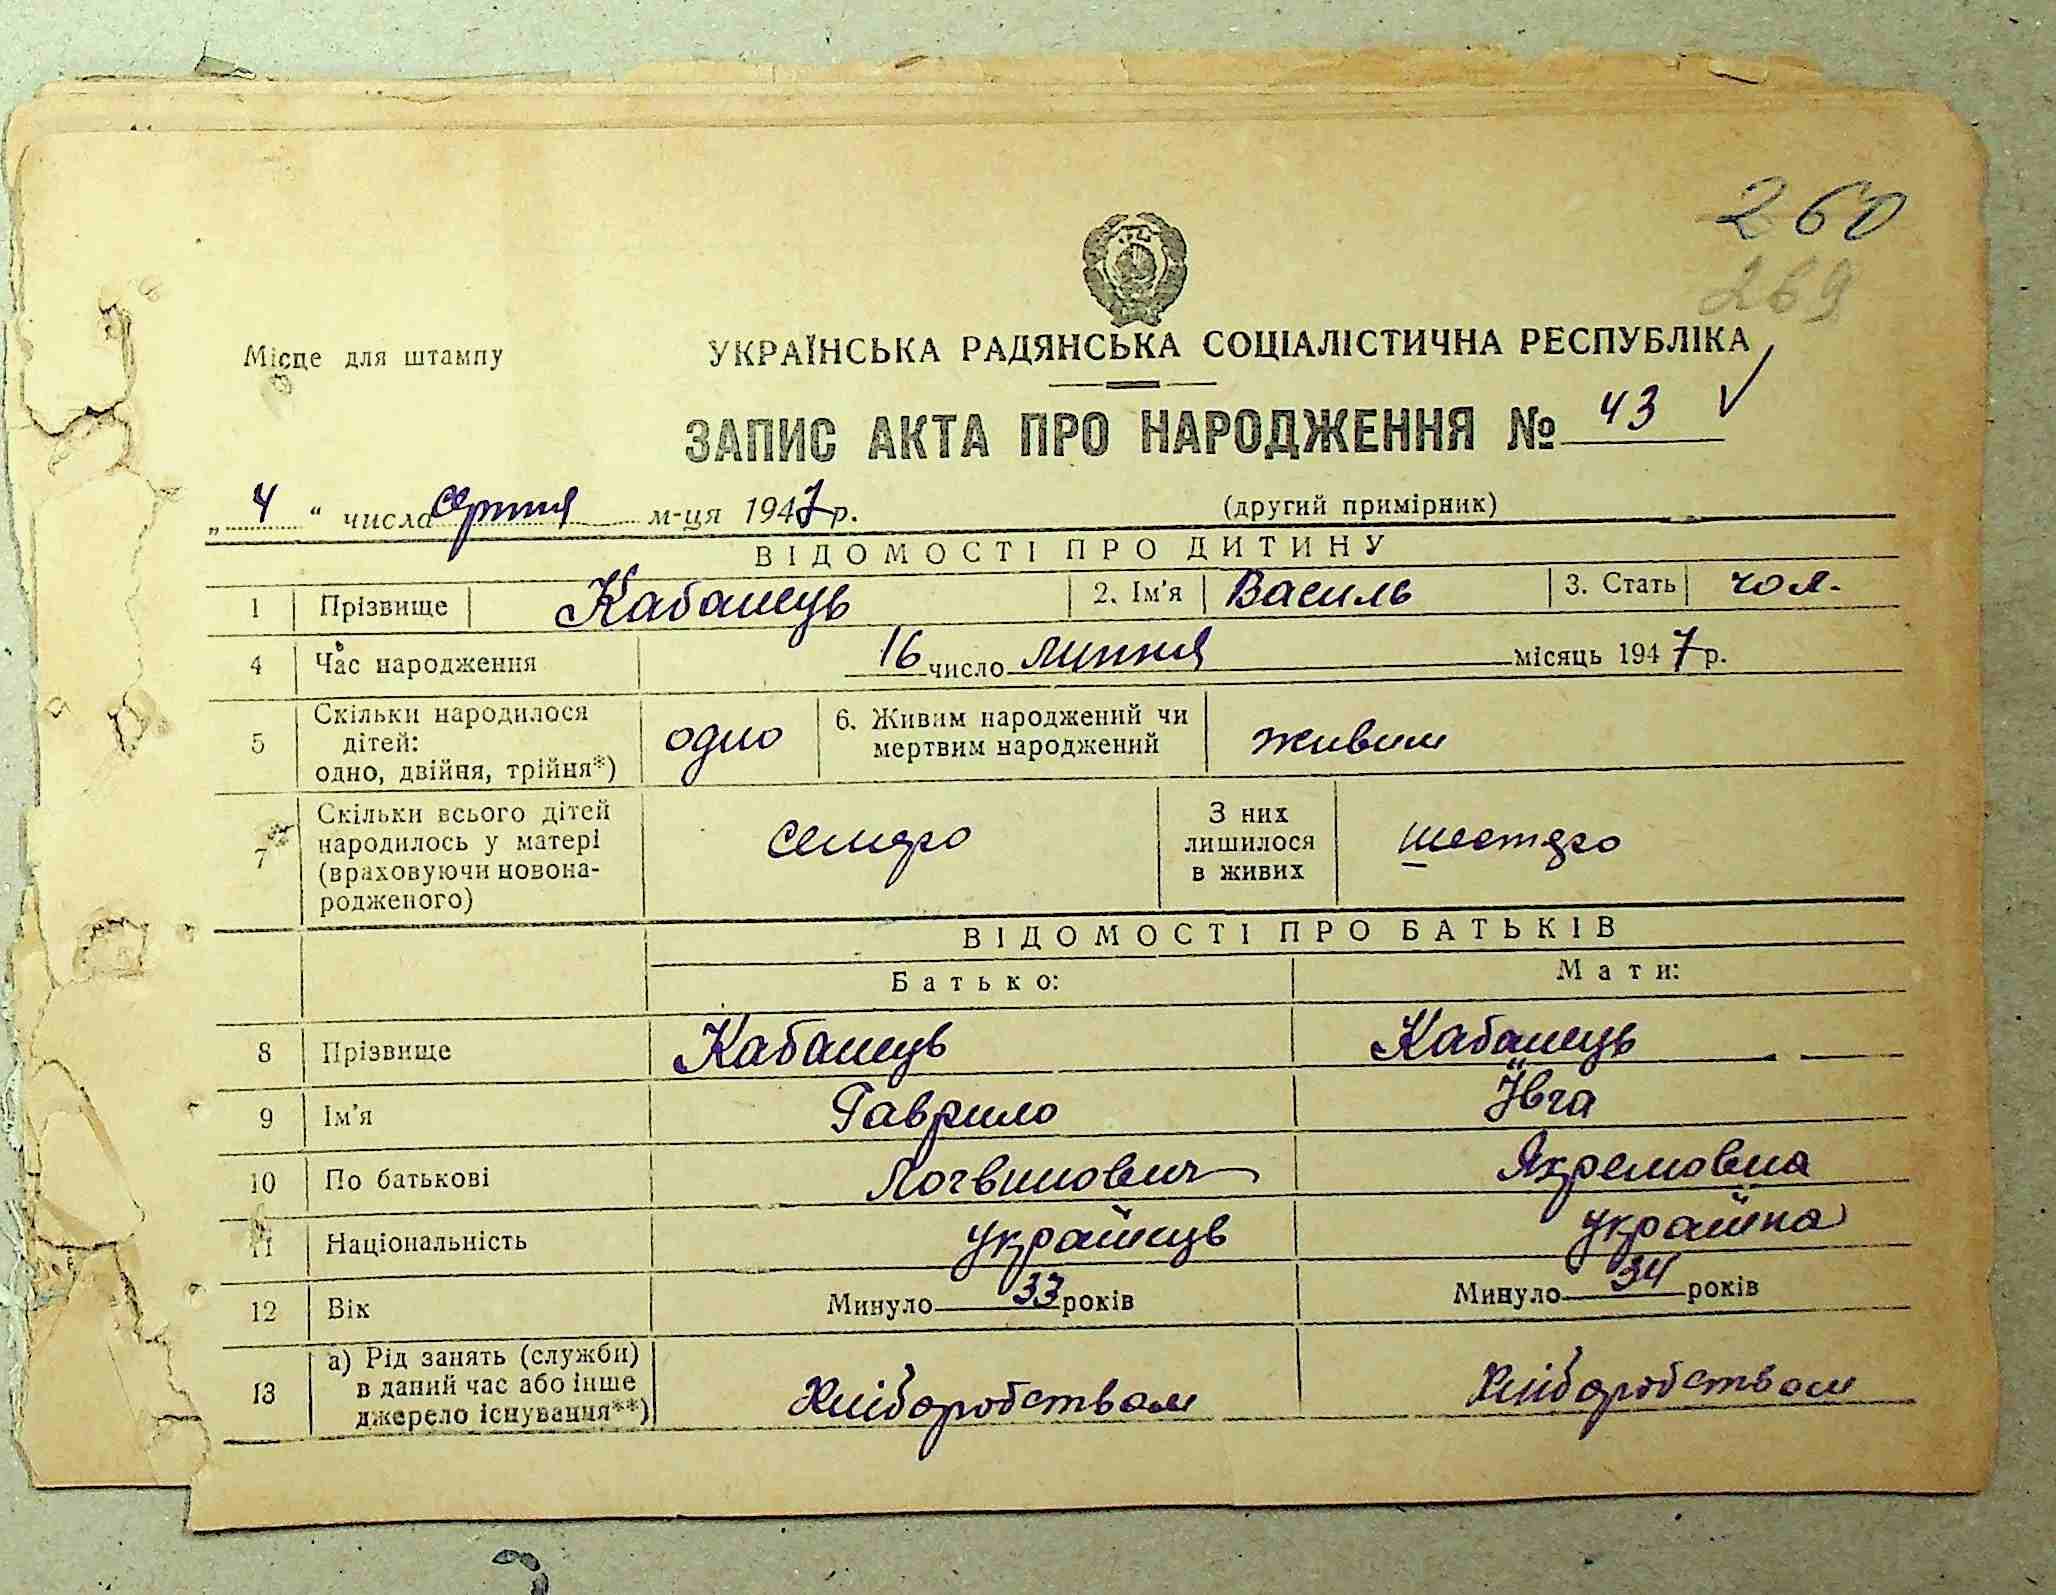 260
269
Місце для штампу
УКРАЇНСЬКА РАДЯНСЬКА СОЦІАЛІСТИЧНА РЕСПУБЛІКА
ЗАПИС АКТА ПРО НАРОДЖЕННЯ № 43
„ 4 “ числа серпня м-ця 1947 р.
(другий примірник)
ВІДОМОСТІ ПРО ДИТИНУ
1 Прізвище Кабанець 2. Ім'я Василь 3. Стать чол.
4 Час народження 16 число липня місяць 1947 р.
5 Скільки народилося дітей: одно, двійня, трійня*) одно 6. Живим народжений чи мертвим народжений живим
7 Скільки всього дітей народилось у матері (враховуючи новона-родженого) семеро З них лишилося в живих шестеро
ВІДОМОСТІ ПРО БАТЬКІВ
Батько: Мати:
8 Прізвище Кабанець Кабанець
9 Ім'я Гаврило Ївга
10 По батькові Логвинович Яхремовна
11 Національність українець українка
12 Вік Минуло 33 років Минуло 34 років
13 а) Рід занять (служби) в даний час або інше джерело існування**) Хліборобством Хліборобством